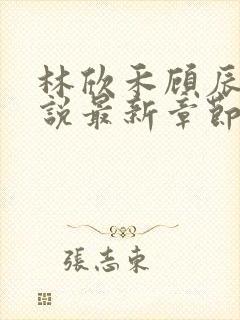 林欣禾顧辰
說最新章節
張志東